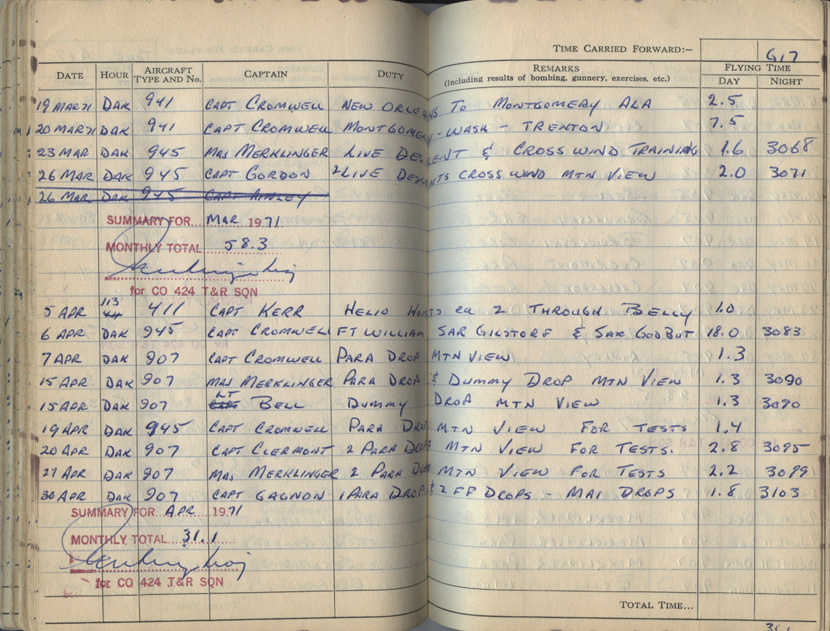 TIME CARRIED FORWARD:– 617
DATE HOUR AIRCRAFT TYPE AND No. CAPTAIN DUTY REMARKS (Including results of bombing, gunnery, exercises, etc.) FLYING TIME DAY NIGHT
19 MAR 71 DAK 941 CAPT CROMWELL NEW ORLEANS TO MONTGOMERY ALA 2.5
20 MAR 71 DAK 941 CAPT CROMWELL MONTGOMERY - WASH - TRENTON 7.5
23 MAR DAK 945 MAJ MERKLINGER LIVE DESCENT & CROSS WIND TRAINING 1.6 3068
26 MAR DAK 945 CAPT GORDON 2 LIVE DESCENTS CROSS WIND MTN VIEW 2.0 3071
26 MAR DAK 945 CAPT AINLEY
SUMMARY FOR MAR 1971
MONTHLY TOTAL 58.3
for CO 424 T&R SQN
5 APR 113 411 CAPT KERR HELIO HOISTS ea 2 THROUGH BELLY 1.0
6 APR DAK 945 CAPT CROMWELL FT WILLIAM SAR GILSTORF & SAR GODBUT 18.0 3083
7 APR DAK 907 CAPT CROMWELL PARA DROP MTN VIEW 1.3
15 APR DAK 907 MAJ MERKLINGER PARA DROP & DUMMY DROP MTN VIEW 1.3 3090
15 APR DAK 907 LT BELL DUMMY DROP MTN VIEW 1.3 3090
19 APR DAK 945 CAPT CROMWELL PARA DROP MTN VIEW FOR TESTS 1.4
20 APR DAK 907 CAPT CLERMONT 2 PARA DROP MTN VIEW FOR TESTS. 2.8 3095
21 APR DAK 907 MAJ MERKLINGER 2 PARA DROP MTN VIEW FOR TESTS 2.2 3099
30 APR DAK 907 CAPT GAGNON 1 PARA DROP & 2 FF DROPS - MA1 DROPS 1.8 3103
SUMMARY FOR APR 1971
MONTHLY TOTAL 31.1
for CO 424 T&R SQN
TOTAL TIME...